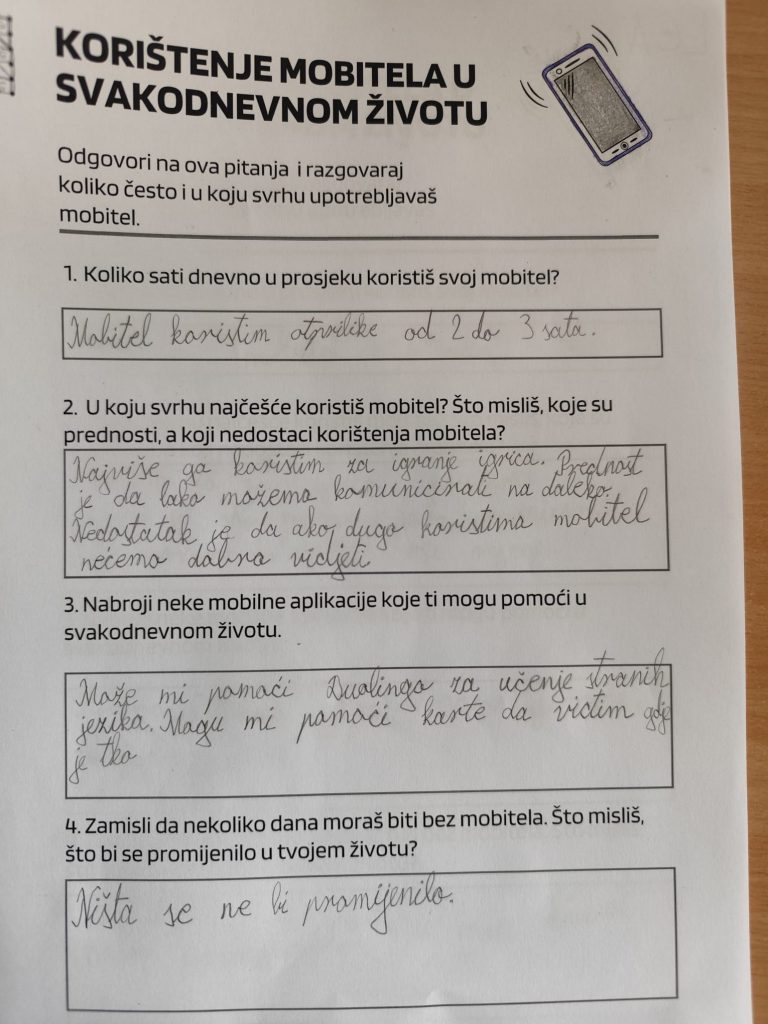 KORIŠTENJE MOBITELA U
SVAKODNEVNOM ŽIVOTU
Odgovori na ova pitanja i razgovaraj
koliko često i u koju svrhu upotrebljavaš
mobitel.
1. Koliko sati dnevno u prosjeku koristiš svoj mobitel?
Mobitel koristim otprilike od 2 do 3 sata.
2. U koju svrhu najčešće koristiš mobitel? Što misliš, koje su
prednosti, a koji nedostaci korištenja mobitela?
Najviše ga koristim za igranje igrica. Prednost
je da lako možemo komunicirati na daleko.
Nedostatak je da ako dugo koristimo mobitel
nećemo dobro vidjeti
3. Nabroji neke mobilne aplikacije koje ti mogu pomoći u
svakodnevnom životu.
Može mi pomoći Duolingo za učenje stranih
jezika. Mogu mi pomoći karte da vidim gdje
je tko
4. Zamisli da nekoliko dana moraš biti bez mobitela. Što misliš,
što bi se promijenilo u tvojem životu?
Ništa se ne bi promijenilo.